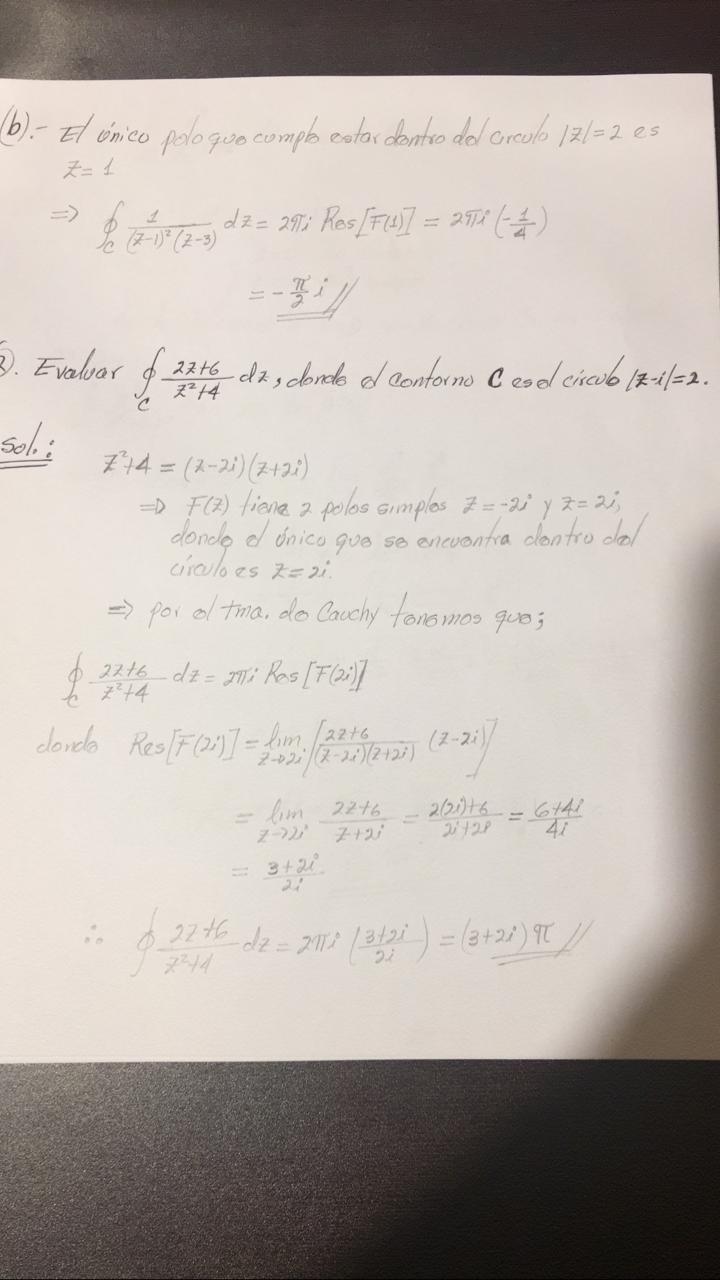 (b).- El único polo que cumple estar dentro del circulo |z|=2 es
z=1
=> ∮_C 1/((z-1)²(z-3)) dz = 2πi Res[F(1)] = 2πi(-1/4)
= -π/2 i //
Evaluar ∮_C (2z+6)/(z²+4) dz, donde el contorno C es el círculo |z-i|=2.
Sol.:
z²+4 = (z-2i)(z+2i)
=> F(z) tiene 2 polos simples z=-2i y z=2i,
donde el único que se encuentra dentro del
círculo es z=2i.
=> por el tma. de Cauchy tenemos que;
∮_C (2z+6)/(z²+4) dz = 2πi Res[F(2i)]
donde Res[F(2i)] = lim_{z→2i} [(2z+6)/((z-2i)(z+2i)) (z-2i)]
= lim_{z→2i} (2z+6)/(z+2i) = (2(2i)+6)/(2i+2i) = (6+4i)/4i
= (3+2i)/2i
∴ ∮ (2z+6)/(z²+4) dz = 2πi ((3+2i)/2i) = (3+2i)π //